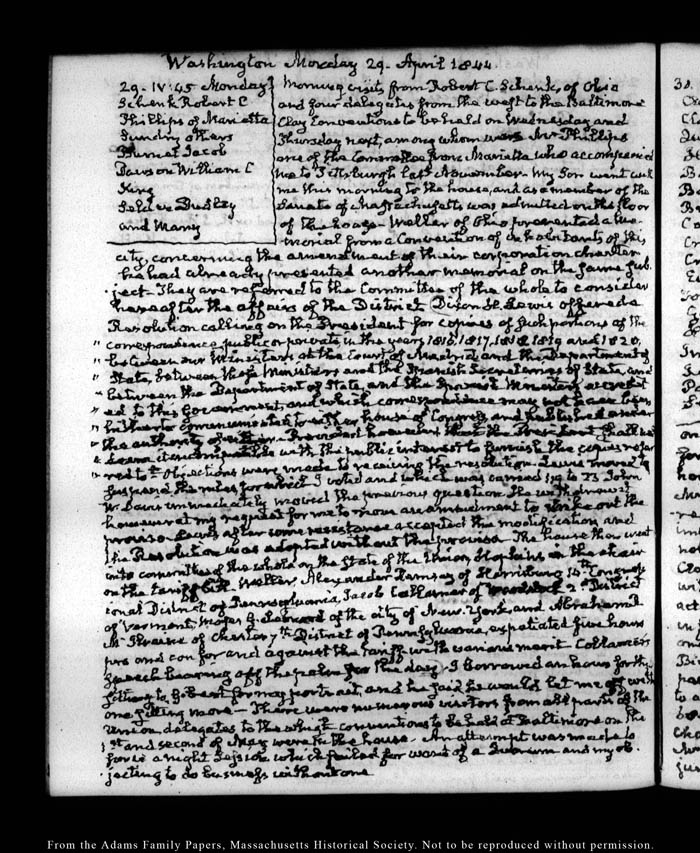 Washington Monday 29. April 1844.
29. IV:45 Monday
Schenk Robert C
Phillips of Marietta
Sundry others
Burnet Jacob
Dawson William C
King
Selden Dudley
and Many
Morning visits from Robert C. Schenk, of Ohio
and four delegates from the west to the Baltimore
Clay Conventions to be held on Wednesday and
Thursday next, among whom were Mr Phillips
one of the Committee from Marietta who accompanied
me to Pittsburgh last November. My Son went with
me this morning to the house, and as a member of the
Senate of Massachusetts was admitted on the floor
of the house. Weller of Ohio presented a me-
morial from a Convention of inhabitants of this
city, concerning the amendment of their corporation charter
he had already presented another memorial on the same sub-
ject. They are referred to the Committee of the whole to consider
hereafter the affairs of the District. Dixon H. Lewis offered a
Resolution calling on the President for copies of such portions of the
correspondence public or private in the years 1816, 1817, 1818, 1819 and 1820,
between our Ministers at the Court of Madrid and the Department of
State, between those Ministers and the Spanish Secretaries of State, and
between the Department of State, and the Spanish Ministers accredit-
ed to this Government, and which correspondence may not have been
hitherto communicated to either house of Congress and published under
the authority of either. Provided however that the President shall
deem it compatible with the public interest to furnish the copies refer-
red to. Objections were made to receiving the resolution. Lewis moved to
suspend the rules for which I voted and which was carried to 23 John
W. Davis immediately moved the previous question. He withdrew it
however at my request for me to move an amendment to strike out the
proviso. Lewis after some resistance accepted the modification and
the Resolution was adopted without the proviso. The house then went
into committee of the whole on the State of the Union, Hopkins in the chair
on the tariff bill. Weller, Alexander Ramsey of Harrisburg 14th Congress-
ional District of Pennsylvania, Jacob Collamer of Woodstock 2d District
of Vermont, Moses G. Leonard of the city of New-York, and Abraham R
McIlvaine of Chester 7th District of Pennsylvania, expatiated five hours
pro and con for and against the tariff with various merit. Collamer's
Speech bearing off the palm for the day. I borrowed an hour for the
sitting to for my portrait, and he said he would let me off with
one sitting more — There were numerous visitors from all parts of the
Union, delegates to the whig conventions to be held at Baltimore on the
1st and second of May were in the house. An attempt was made to
force a night Session which failed for want of a Quorum and my ob-
jecting to do business without one
From the Adams Family Papers, Massachusetts Historical Society. Not to be reproduced without permission.